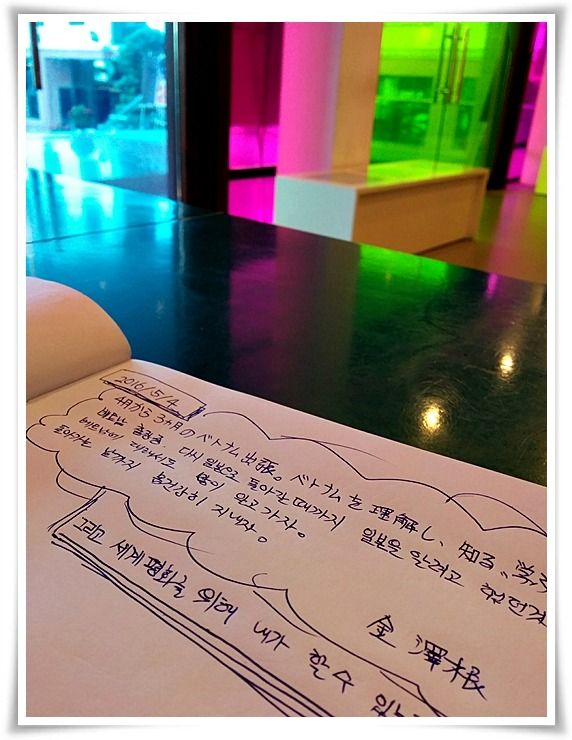 2016/5/4
4月から3ヶ月のベトナム出張。ベトナムを理解し、知る、学ぶ
베트남 출장중 다시 일본으로 돌아갈때까지 일본을 알려고 했던것
베트남에 대해서도 많이 알고가자。
돌아가는 날까지 용감히 지내자。
金澤根
그리고 세계평화를 위해 내가 할수 있는